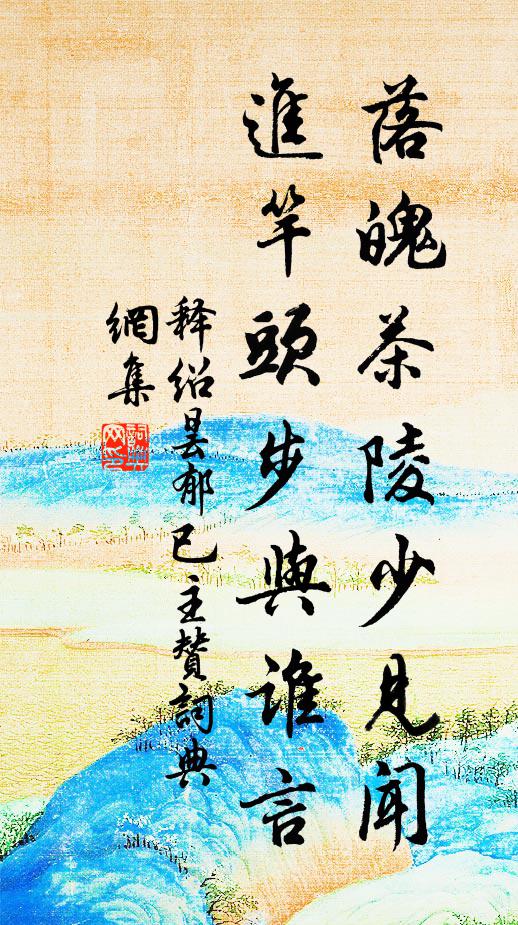 落魄茶陵少見聞
進竿頭步與誰言
释紹曇郁已主贊詞典
網集